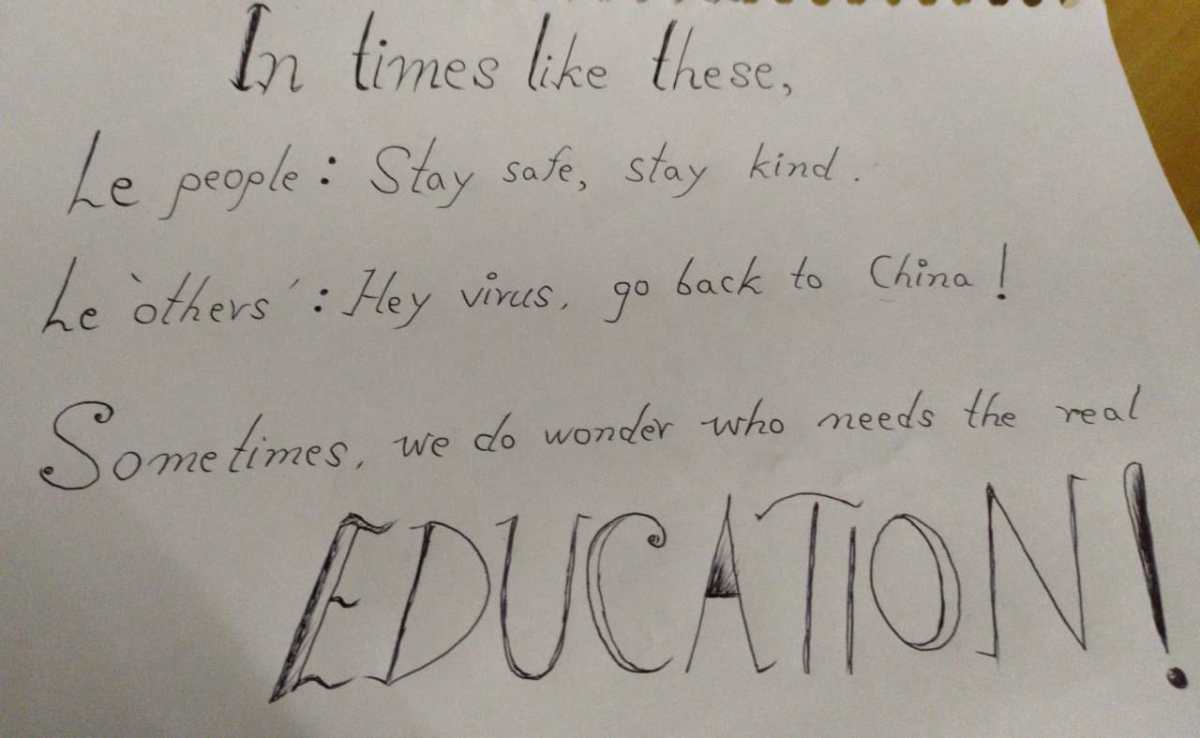 In times like these,
Le people: Stay safe, stay kind.
Le 'others': Hey virus, go back to China!
Sometimes, we do wonder who needs the real
EDUCATION!